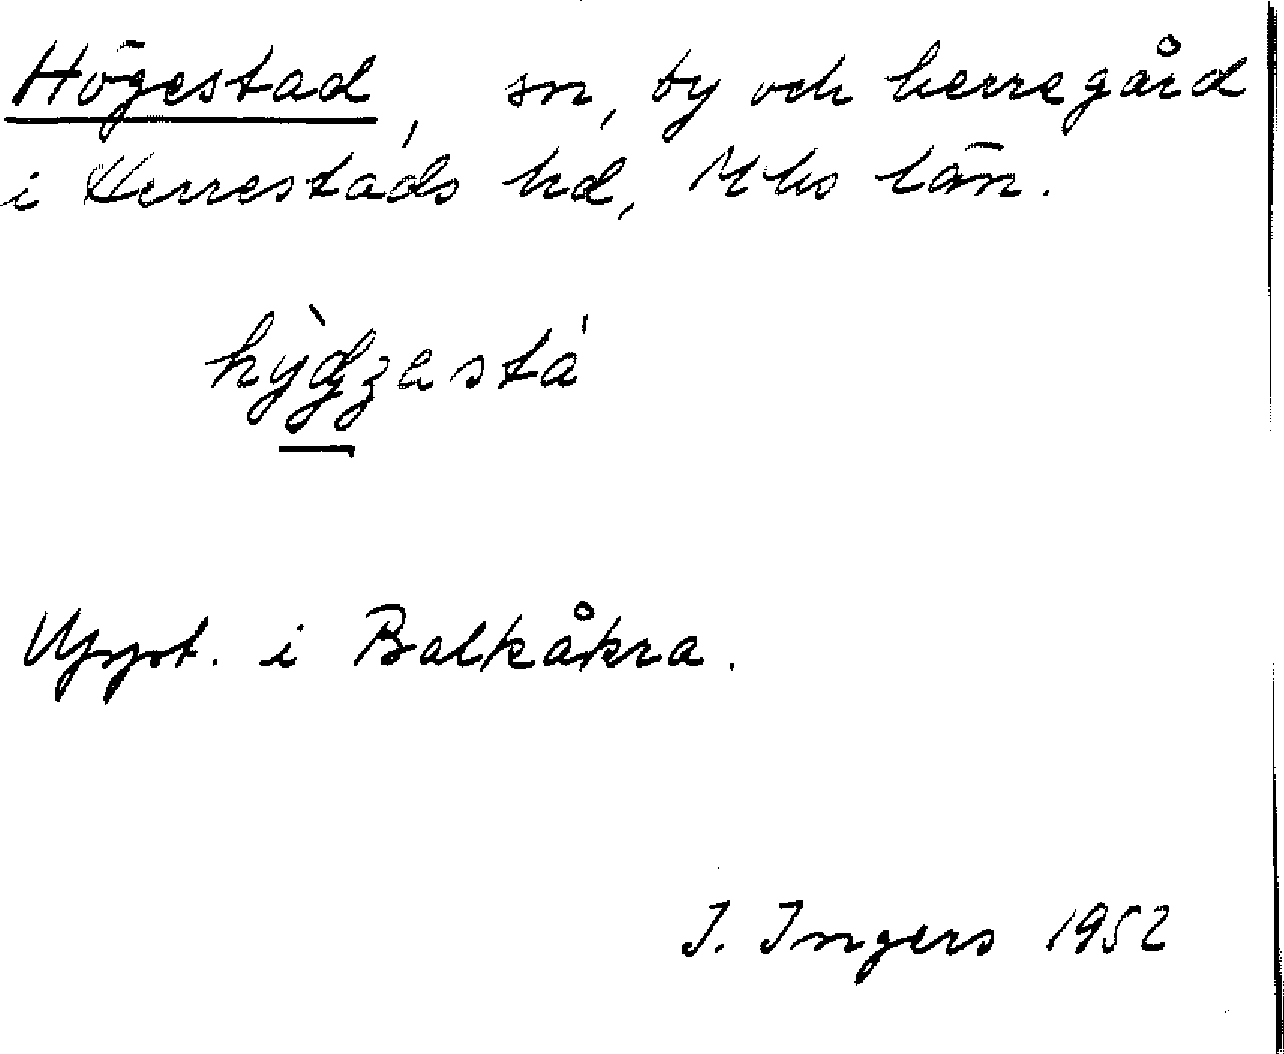 Högestad, sn, by och herregård
i Herrestads hd, Mhs län.
Uppt. i Balkåkra.
I. Ingers 1952